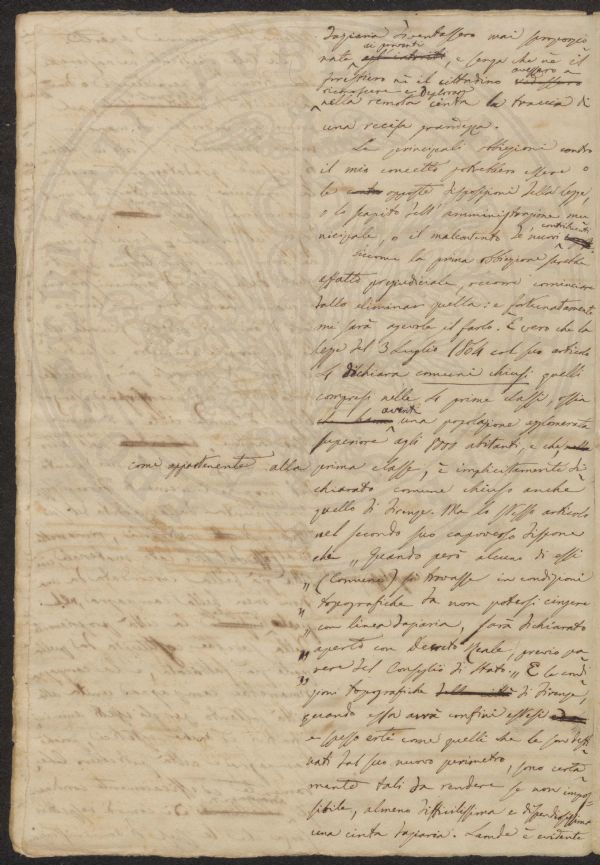 daziaria diventassero mai sproporzio
nata ai proventi, e senza che nè il
forestiero nè il cittadino avessero a
rintracciare
nella remota cinta la traccia di
una recisa grandezza.
Le principali obbiezioni contro
il mio concetto potrebbero essere o
le opposte disposizioni della legge,
o lo scapito dell'amministrazione mu
nicipale, o il malcontento de' nuovi contribuenti
Siccome la prima obbiezione sarebbe
affatto pregiudiciale, occorre cominciare
dallo eliminar quella: e fortunatamente
mi sarà agevole il farlo. È vero che la
legge del 3 Luglio 1864 col suo articolo
4 dichiara comuni chiusi quelli
compresi nelle 4 prime classi, ossia
aventi una popolazione agglomerata
superiore agli 8000 abitanti, e che,
come appartenente alla prima classe, è implicitamente di
chiarato comune chiuso anche
quello di Firenze. Ma lo stesso articolo
nel secondo suo capoverso dispone
che „ Quando però alcuno di essi
„ (Comuni) si trovasse in condizioni
„ topografiche da non potersi cingere
„ con linea daziaria, sarà dichiarato
„ aperto con Decreto Reale, previo pa
„ rere del Consiglio di Stato „ E le condi
zioni topografiche di Firenze,
quando essa avrà confini estesi
e spesso erti come quelli che le son desti
nati dal suo nuovo perimetro, sono certa
mente tali da rendere se non impos
sibile, almeno difficilissima e dispendiosissima
una cinta daziaria. Laonde è evidente